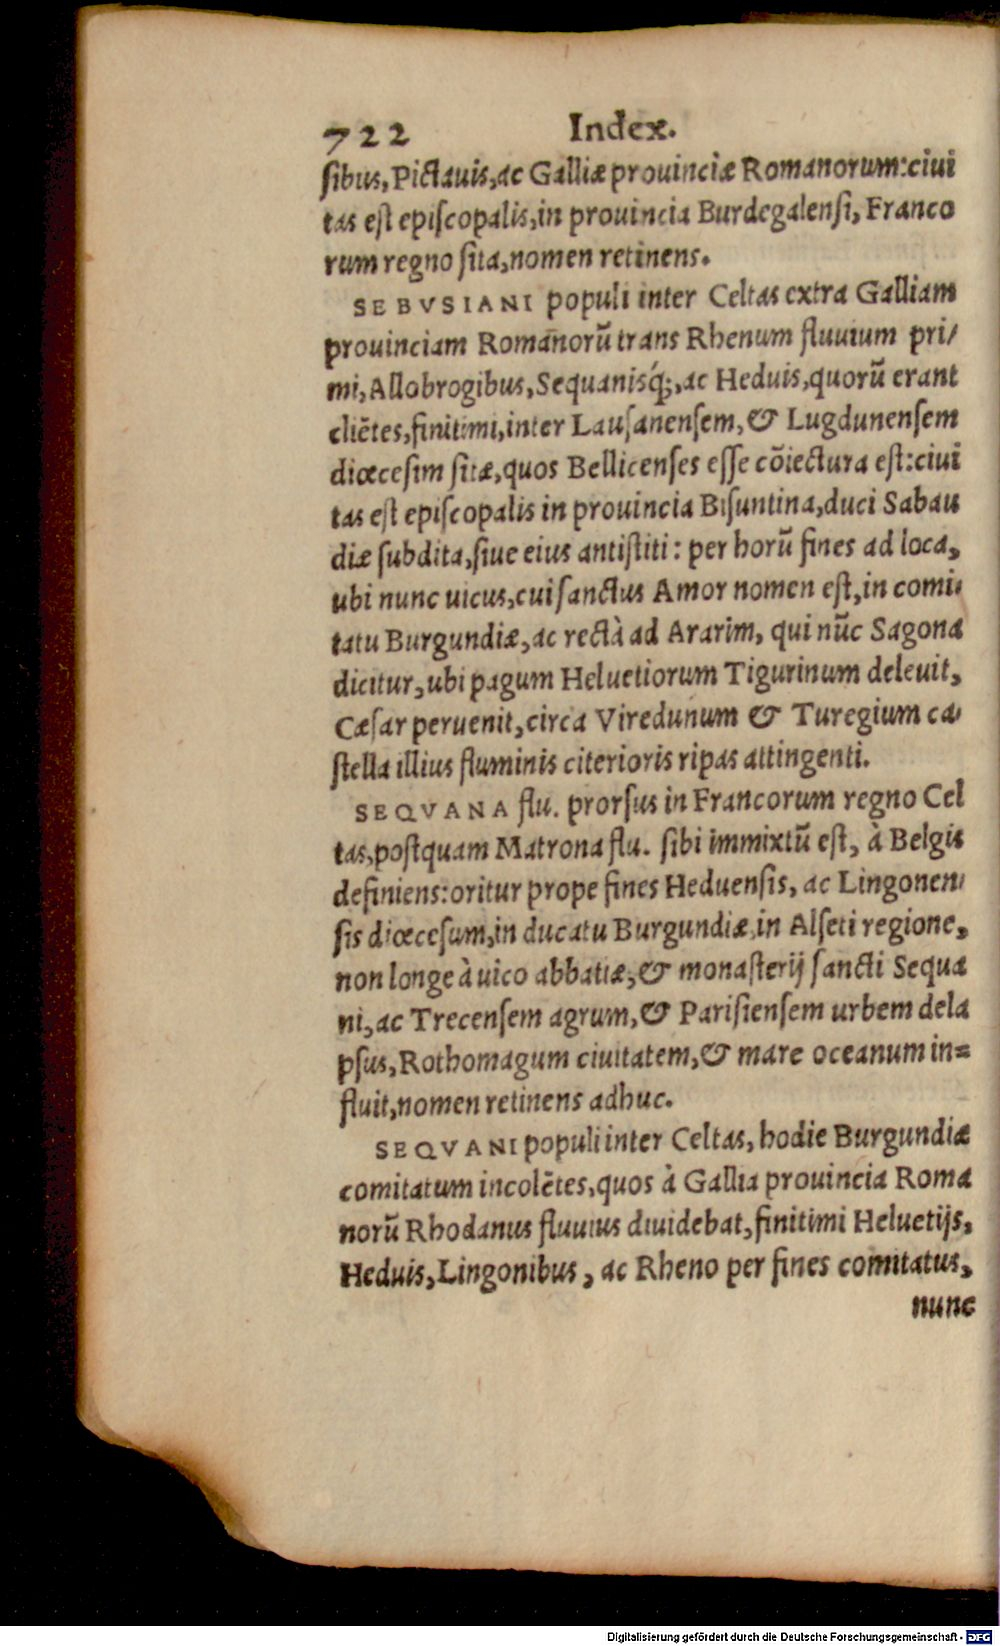 722 Index.
sibus, Pictauis, ac Galliæ prouinciæ Romanorum: ciui
tas est episcopalis, in prouincia Burdegalensi, Franco
rum regno sita, nomen retinens.
SEBVSIANI populi inter Celtas extra Galliam
prouinciam Romanorũ trans Rhenum fluuium pri/
mi, Allobrogibus, Sequanisq́;, ac Heduis, quorũ erant
cliẽtes, finitimi, inter Lausanensem, & Lugdunensem
diœcesim sitæ, quos Bellicenses esse cõiectura est: ciui
tas est episcopalis in prouincia Bisuntina, duci Sabau
diæ subdita, siue eius antistiti: per horũ fines ad loca,
ubi nunc uicus, cui sanctus Amor nomen est, in comi/
tatu Burgundiæ, ac rectà ad Ararim, qui nũc Sagona
dicitur, ubi pagum Heluetiorum Tigurinum deleuit,
Cæsar peruenit, circa Viredunum & Turegium ca/
stella illius fluminis citerioris ripas attingenti.
SEQVANA flu. prorsus in Francorum regno Cel
tas, postquam Matrona flu. sibi immixtũ est, à Belgis
definiens: oritur prope fines Heduensis, ac Lingonen/
sis diœcesum, in ducatu Burgundiæ, in Alseti regione,
non longe à uico abbatiæ, & monasterij sancti Sequa
ni, ac Trecensem agrum, & Parisiensem urbem dela
psus, Rothomagum ciuitatem, & mare oceanum in=
fluit, nomen retinens adhuc.
SEQVANI populi inter Celtas, hodie Burgundiæ
comitatum incolẽtes, quos à Gallia prouincia Roma
norũ Rhodanus fluuius diuidebat, finitimi Heluetijs,
Heduis, Lingonibus, ac Rheno per fines comitatus,
nunc
Digitalisierung gefördert durch die Deutsche Forschungsgemeinschaft - DFG